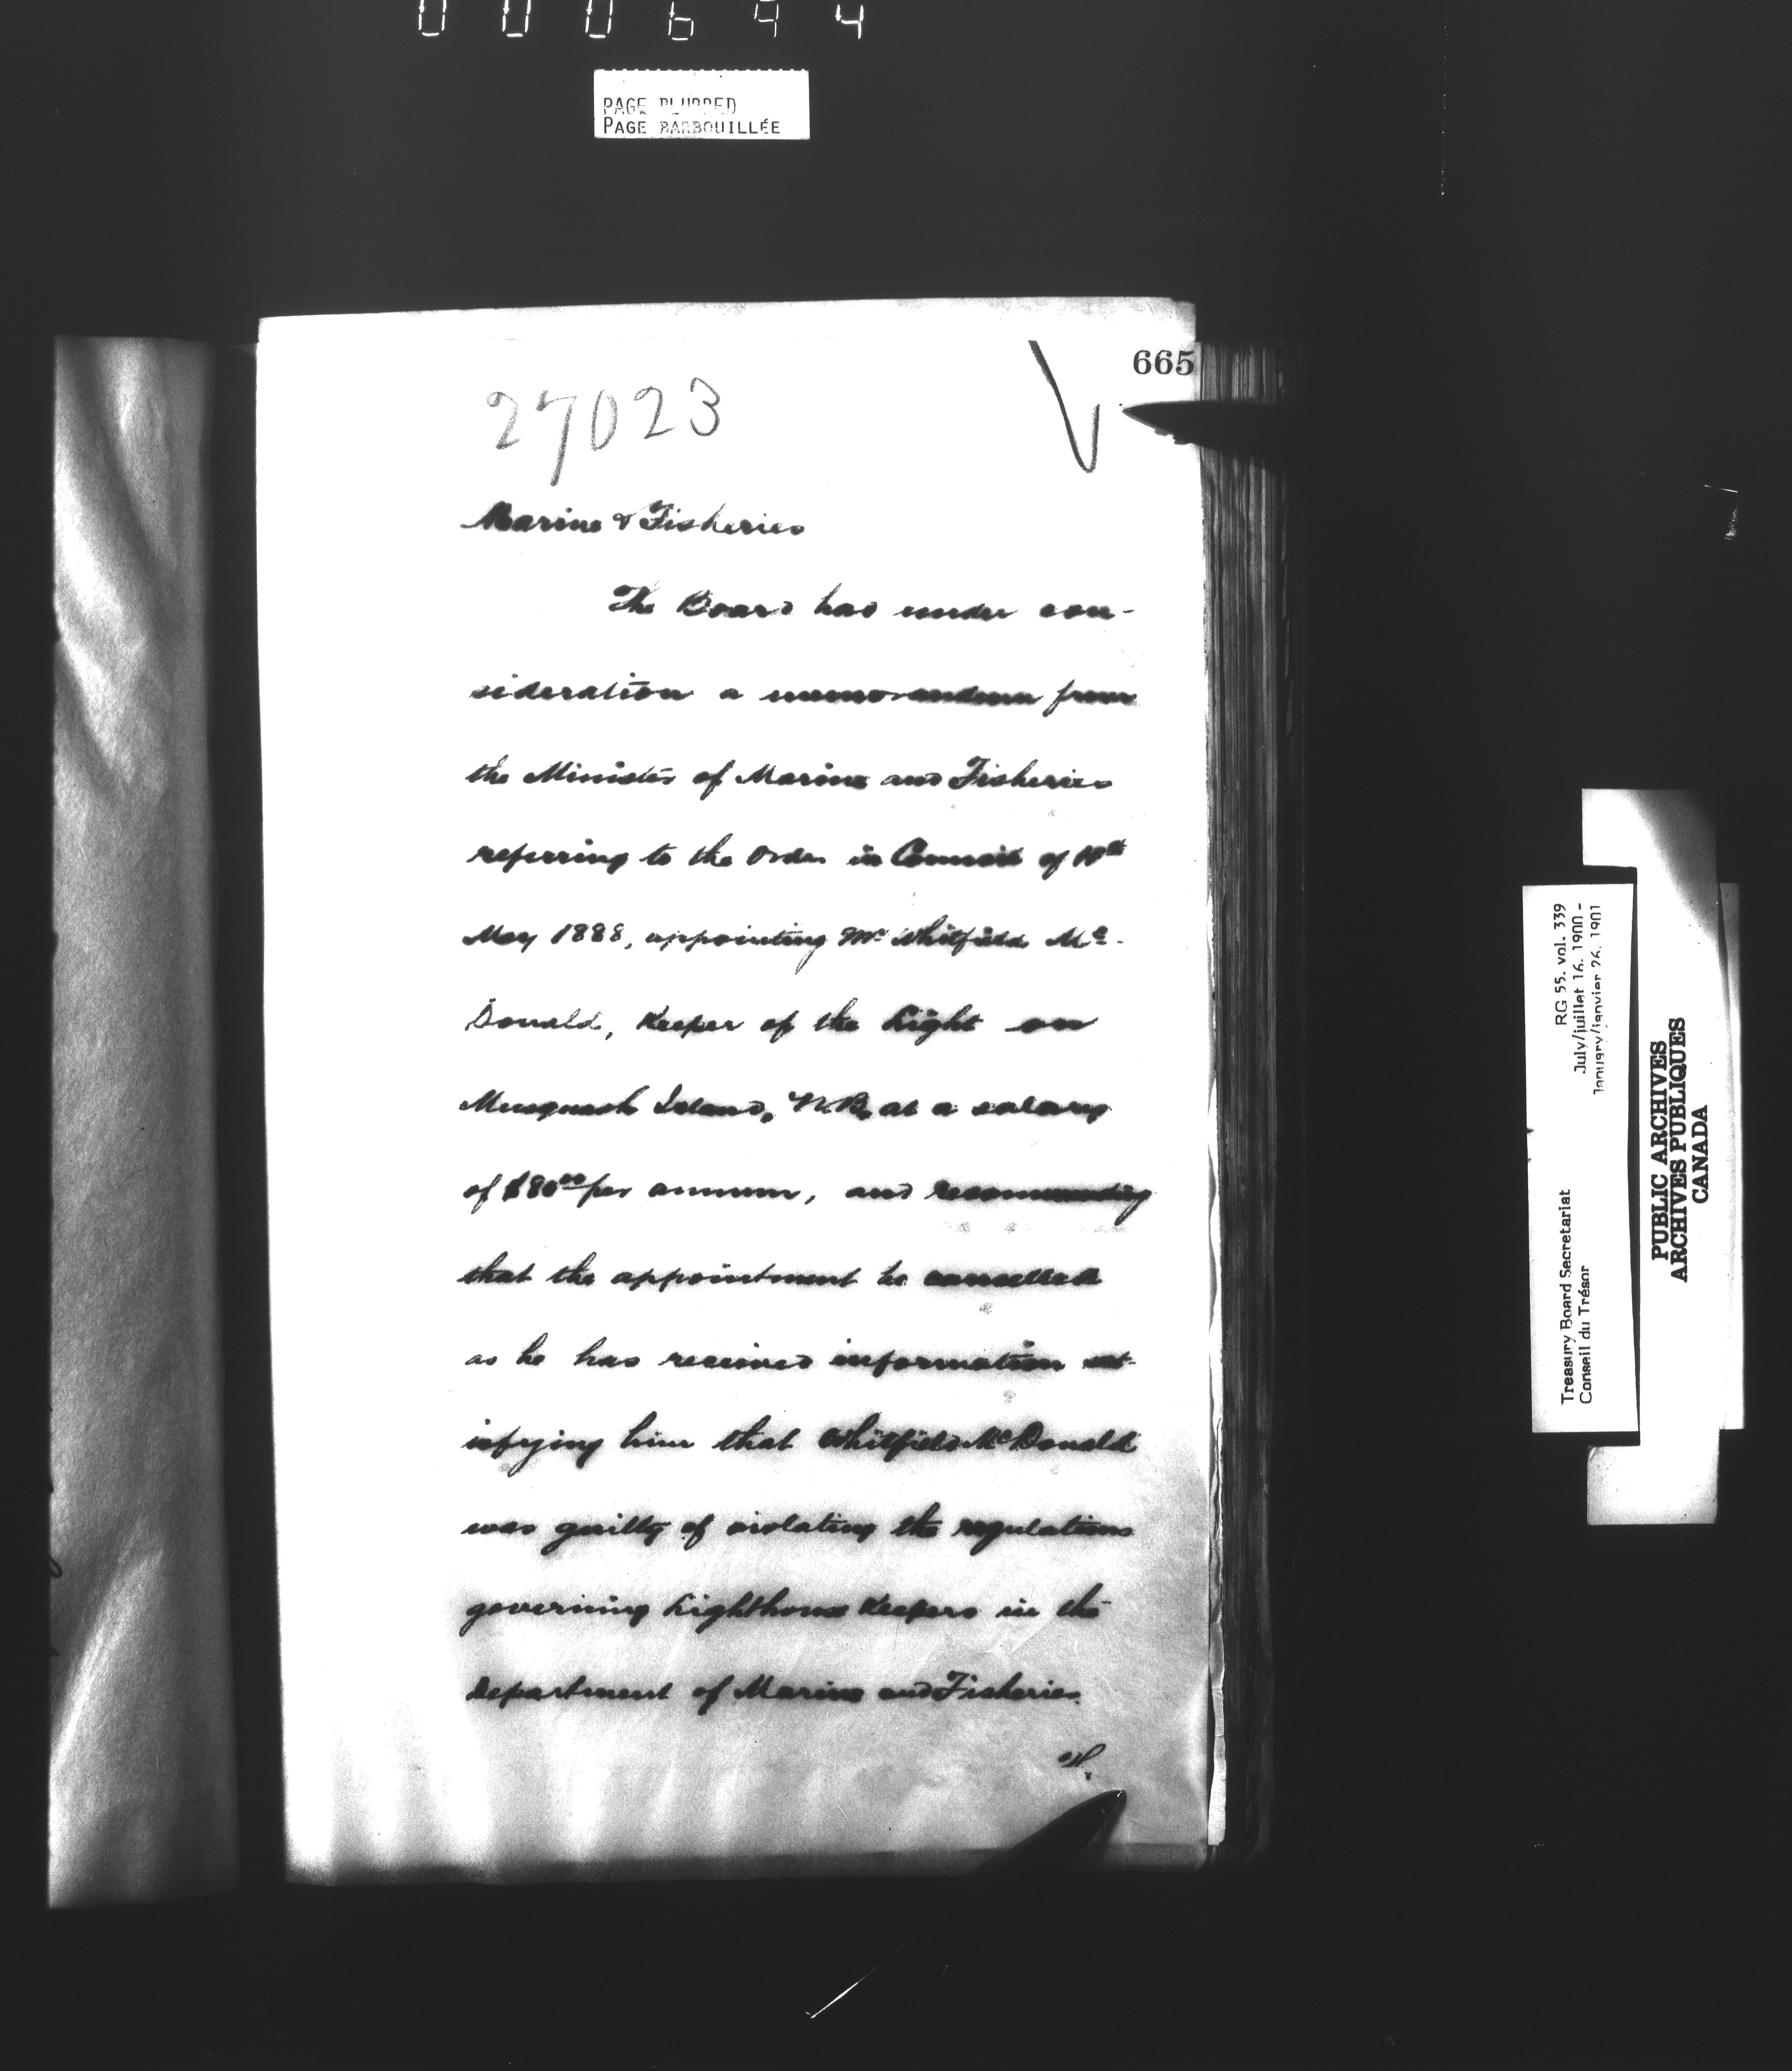 000694
PAGE BLURRED
PAGE BARBOUILLÉE
665
27023
Marine & Fisheries
The Board has under con-
sideration a memorandum from
the Minister of Marine and Fisheries
referring to the Order in Council of
May 1888, appointing Mr Whitfield Mc-
Donald, Keeper of the Light on
Musquash Island, N.B. at a salary
of $80.00 per annum, and recommending
that the appointment be cancelled
as he has received information sat-
isfying him that Whitfield McDonald
was guilty of violating the regulations
governing Lighthouse Keepers in the
Department of Marine and Fisheries.
RG 55. vol. 339
July/juillet 16. 1900 -
January/janvier 26. 1901
Treasury Board Secretariat
Conseil du Trésor
PUBLIC ARCHIVES
ARCHIVES PUBLIQUES
CANADA